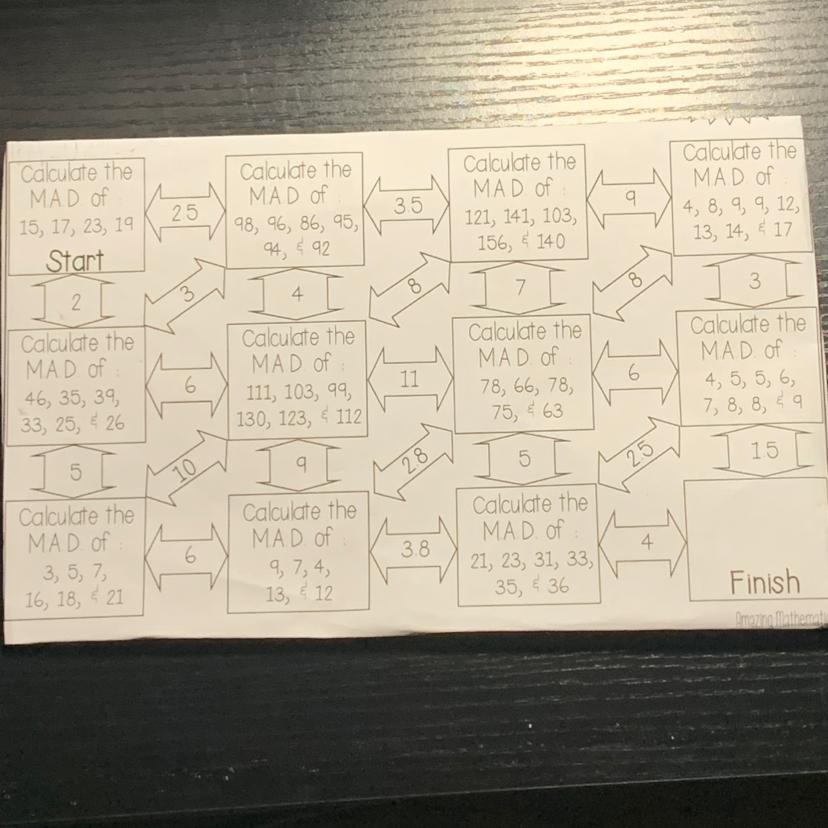 Calculate the
M.A.D. of :
15, 17, 23, 19
Start
2.5
Calculate the
M.A.D. of :
98, 96, 86, 95,
94, & 92
3.5
Calculate the
M.A.D. of :
121, 141, 103,
156, & 140
9
Calculate the
M.A.D. of :
4, 8, 9, 9, 12,
13, 14, & 17
2
3
4
8
7
8
3
Calculate the
M.A.D. of :
46, 35, 39,
33, 25, & 26
6
Calculate the
M.A.D. of :
111, 103, 99,
130, 123, & 112
11
Calculate the
M.A.D. of :
78, 66, 78,
75, & 63
6
Calculate the
M.A.D. of :
4, 5, 5, 6,
7, 8, 8, & 9
5
10
9
2.8
5
2.5
1.5
Calculate the
M.A.D. of :
3, 5, 7,
16, 18, & 21
6
Calculate the
M.A.D. of :
9, 7, 4,
13, & 12
3.8
Calculate the
M.A.D. of :
21, 23, 31, 33,
35, & 36
4
Finish
Amazing Mathemati